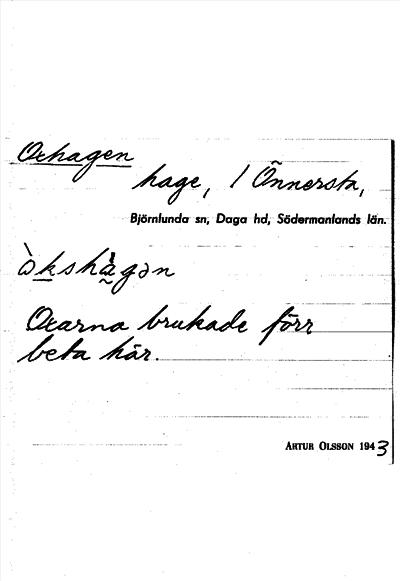 Oxhagen
hage, 1 Õnnersta,
Björnlunda sn, Daga hd, Södermanlands län.
òkshàgən
Oxarna brukade förr
beta här.
ARTUR OLSSON 1943